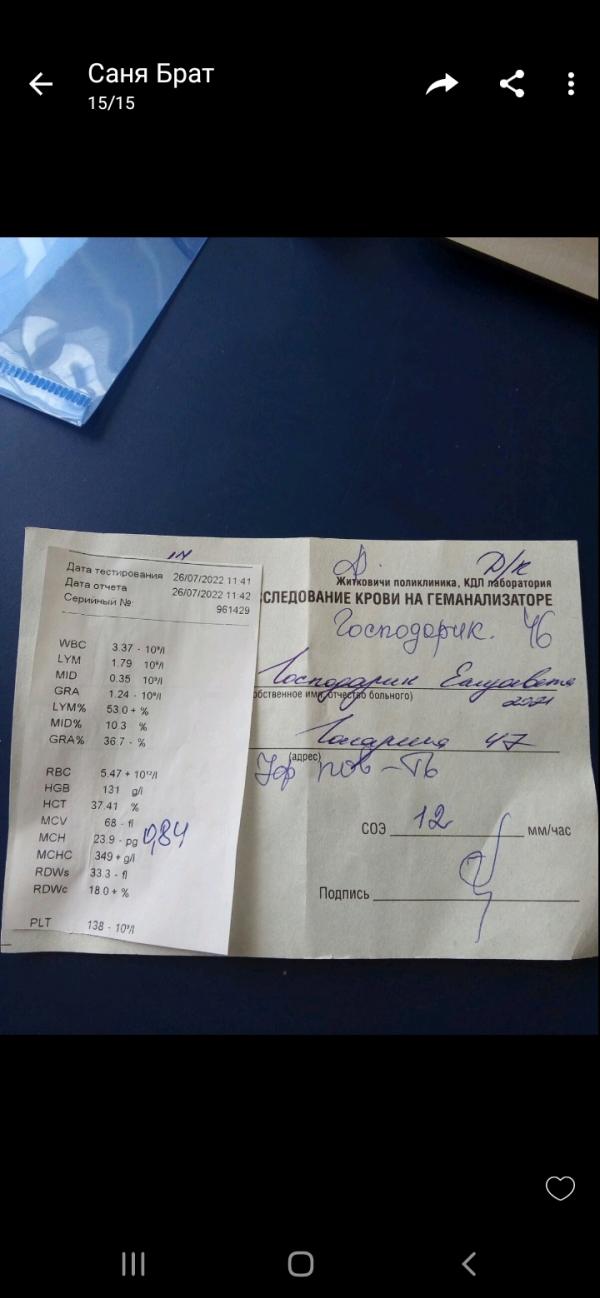 Саня Брат
15/15
Д/к
Житковичи поликлиника, КДЛ лаборатория
ССЛЕДОВАНИЕ КРОВИ НА ГЕМАНАЛИЗАТОРЕ
Господарик. Ч6
Господарик Елизавета
обственное имя, отчество больного)
2021
Гагарина 47
(адрес)
СОЭ 12 мм/час
Подпись
Дата тестирования 26/07/2022 11:41
Дата отчета 26/07/2022 11:42
Серийный №: 961429
WBC 3.37 - 10⁹/l
LYM 1.79 10⁹/l
MID 0.35 10⁹/l
GRA 1.24 - 10⁹/l
LYM% 53.0 + %
MID% 10.3 %
GRA% 36.7 - %
RBC 5.47 + 10¹²/l
HGB 131 g/l
HCT 37.41 %
MCV 68 - fl
MCH 23.9 - pg 0,84
MCHC 349 + g/l
RDWs 33.3 - fl
RDWc 18.0 + %
PLT 138 - 10⁹/l